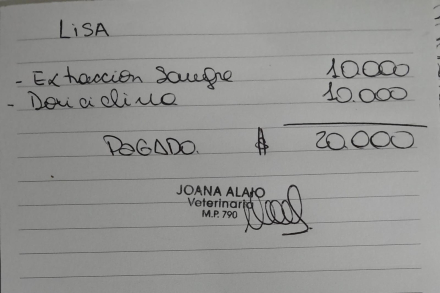 LISA
- Extraccion Sangre 10.000
- Doxiciclina 10.000
PAGADO. $ 20.000
JOANA ALAIO
Veterinaria
M.P. 790